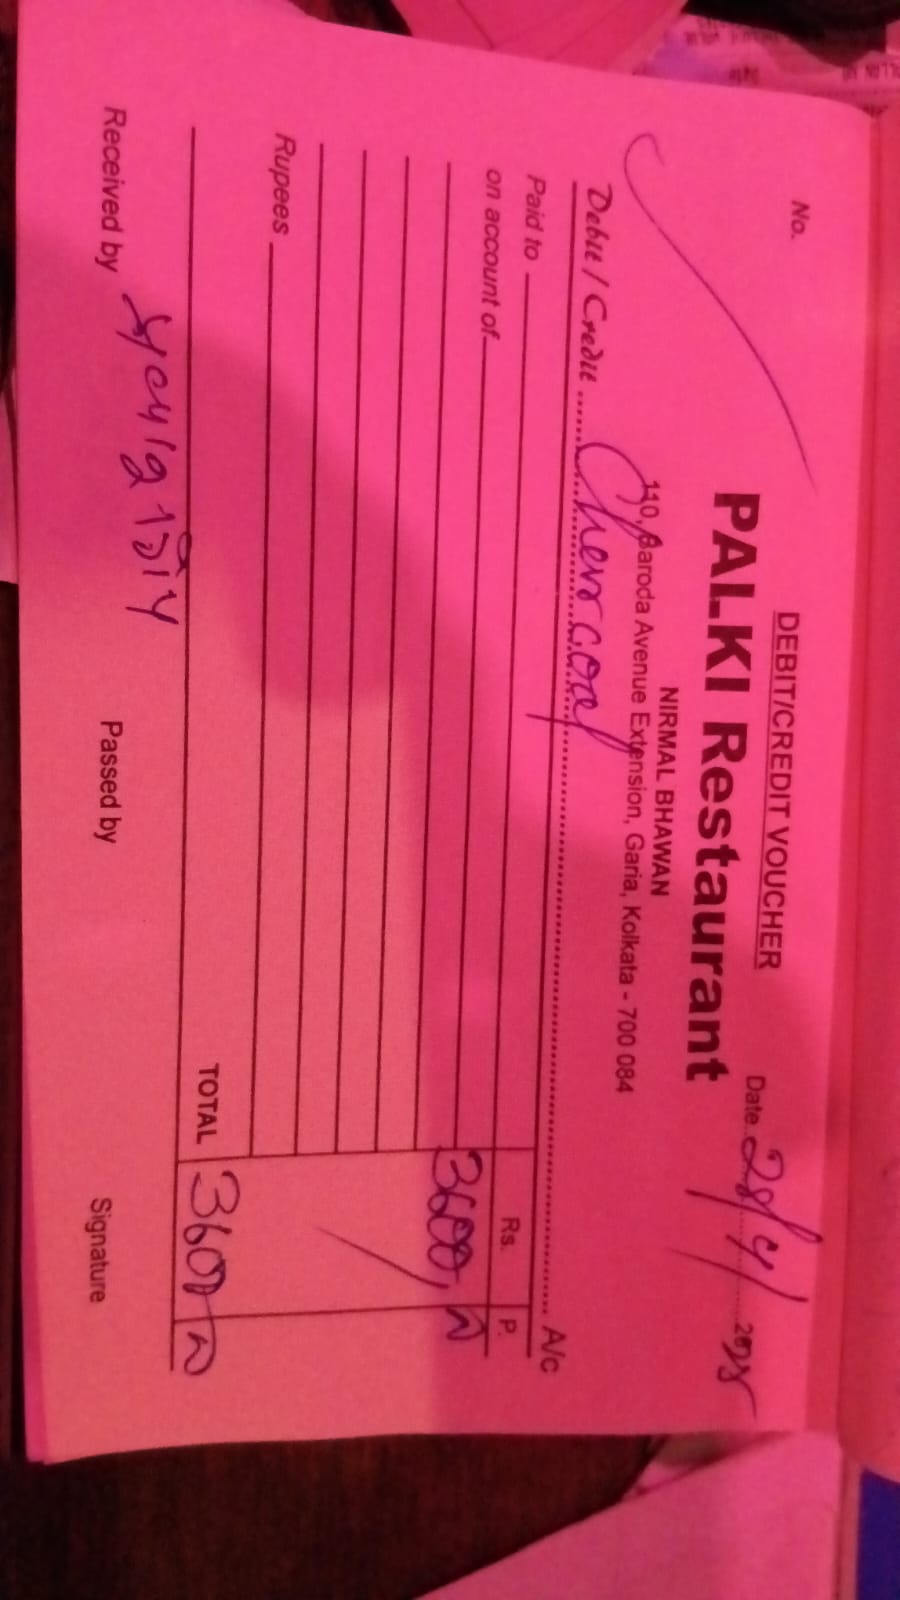 DEBIT/CREDIT VOUCHER
No.
Date 28/4/2025
PALKI Restaurant
NIRMAL BHAWAN
110, Baroda Avenue Extension, Garia, Kolkata - 700 084
Debit / Credit Chercoal A/c
Paid to Rs. P.
on account of 3600,
Rupees
TOTAL 3600
Received by
Passed by
Signature